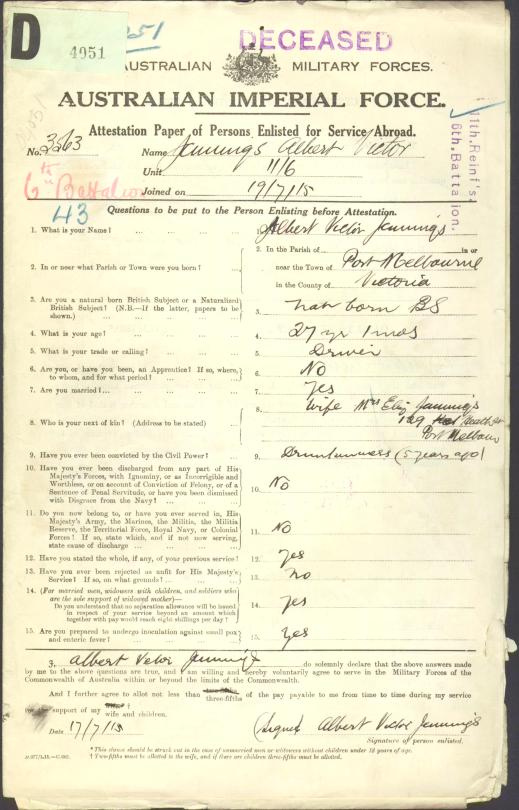 D
4951
DECEASED
AUSTRALIAN MILITARY FORCES.
AUSTRALIAN IMPERIAL FORCE.
Attestation Paper of Persons Enlisted for Service Abroad.
No. 3563 Name Jennings Albert Victor
Unit 11/6
Joined on 19/7/15
11th. Reinf's
6th. Battalion.
6th Battalion
43
Questions to be put to the Person Enlisting before Attestation.
1. What is your Name? ... Albert Victor Jennings
2. In or near what Parish or Town were you born? ... 2. In the Parish of in or
near the Town of Port Melbourne
in the County of Victoria
3. Are you a natural born British Subject or a Naturalized
British Subject? (N.B.—If the latter, papers to be
shown.) ... 3. nat born BS
4. What is your age? ... 4. 27 yr 1 mos
5. What is your trade or calling? ... 5. Driver
6. Are you, or have you been, an Apprentice? If so, where,
to whom, and for what period? ... 6. No
7. Are you married? ... 7. Yes
8. Who is your next of kin? (Address to be stated) ... 8. Wife Mrs Eliz Jennings
129 Heath St
Port Melbourn
9. Have you ever been convicted by the Civil Power? ... 9. Drunkenness (5 years ago)
10. Have you ever been discharged from any part of His
Majesty's Forces, with Ignominy, or as Incorrigible and
Worthless, or on account of Conviction of Felony, or of a
Sentence of Penal Servitude, or have you been dismissed
with Disgrace from the Navy? ... 10. No
11. Do you now belong to, or have you ever served in, His
Majesty's Army, the Marines, the Militia, the Militia
Reserve, the Territorial Force, Royal Navy, or Colonial
Forces? If so, state which, and if not now serving,
state cause of discharge ... 11. No
12. Have you stated the whole, if any, of your previous service? 12. Yes
13. Have you ever been rejected as unfit for His Majesty's
Service? If so, on what grounds? ... 13. no
14. (For married men, widowers with children, and soldiers who
are the sole support of widowed mother)—
Do you understand that no separation allowance will be issued
in respect of your service beyond an amount which
together with pay would reach eight shillings per day? 14. Yes
15. Are you prepared to undergo inoculation against small pox
and enteric fever? ... 15. Yes
I, Albert Victor Jennings do solemnly declare that the above answers made
by me to the above questions are true, and I am willing and hereby voluntarily agree to serve in the Military Forces of the
Commonwealth of Australia within or beyond the limits of the Commonwealth.
And I further agree to allot not less than three-fifths of the pay payable to me from time to time during my service
for the support of my wife and children.
Date 17/7/15 (Signed) Albert Victor Jennings
Signature of person enlisted.
* This clause should be struck out in the case of unmarried men or widowers without children under 18 years of age.
† Two-fifths must be allotted to the wife, and if there are children three-fifths must be allotted.